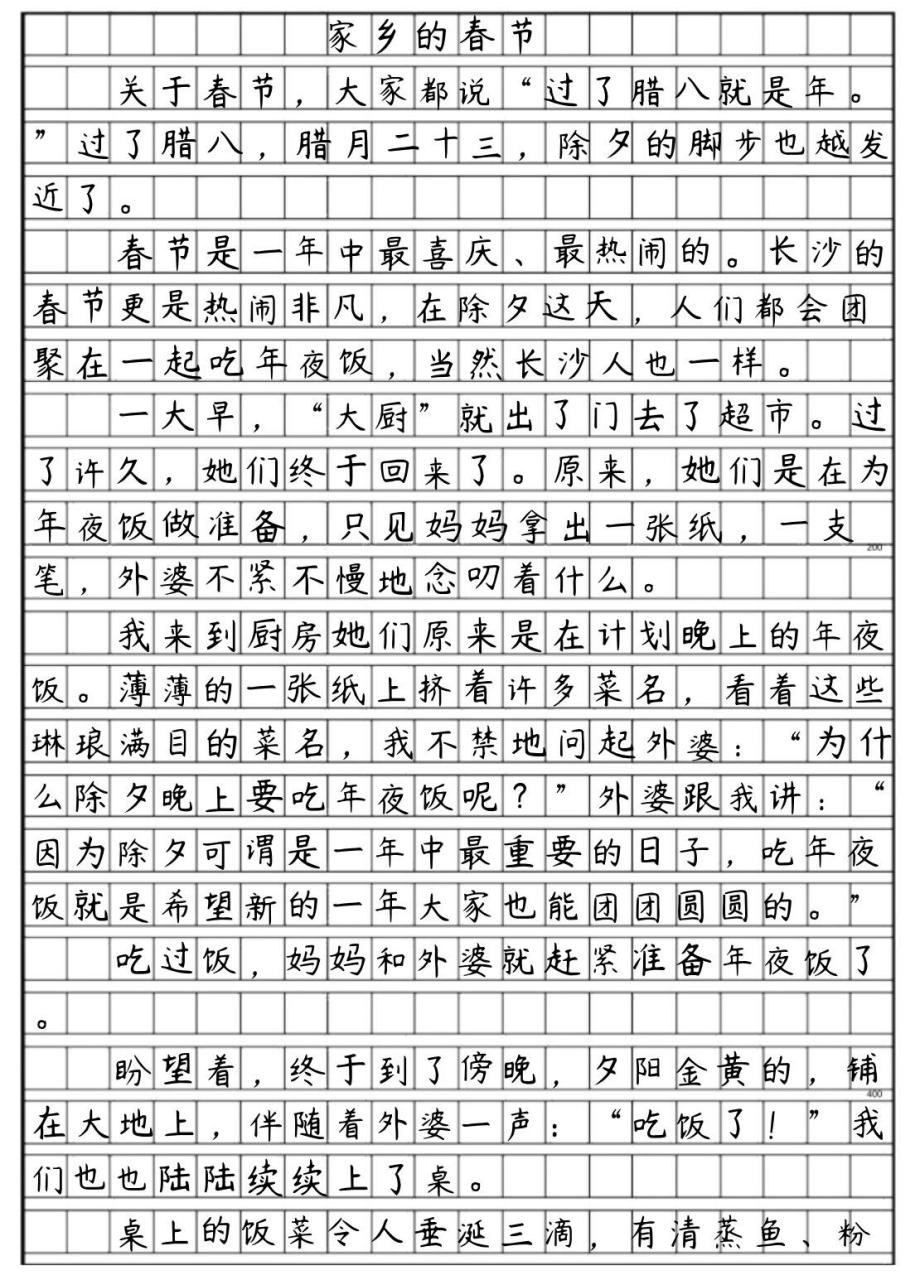 家乡的春节
关于春节，大家都说“过了腊八就是年。
”过了腊八，腊月二十三，除夕的脚步也越发
近了。
春节是一年中最喜庆、最热闹的。长沙的
春节更是热闹非凡，在除夕这天，人们都会团
聚在一起吃年夜饭，当然长沙人也一样。
一大早，“大厨”就出了门去了超市。过
了许久，她们终于回来了。原来，她们是在为
年夜饭做准备，只见妈妈拿出一张纸，一支
200
笔，外婆不紧不慢地念叨着什么。
我来到厨房她们原来是在计划晚上的年夜
饭。薄薄的一张纸上挤着许多菜名，看着这些
琳琅满目的菜名，我不禁地问起外婆：“为什
么除夕晚上要吃年夜饭呢？”外婆跟我讲：“
因为除夕可谓是一年中最重要的日子，吃年夜
饭就是希望新的一年大家也能团团圆圆的。”
吃过饭，妈妈和外婆就赶紧准备年夜饭了
。
盼望着，终于到了傍晚，夕阳金黄的，铺
400
在大地上，伴随着外婆一声：“吃饭了！”我
们也也陆陆续续上了桌。
桌上的饭菜令人垂涎三滴，有清蒸鱼、粉